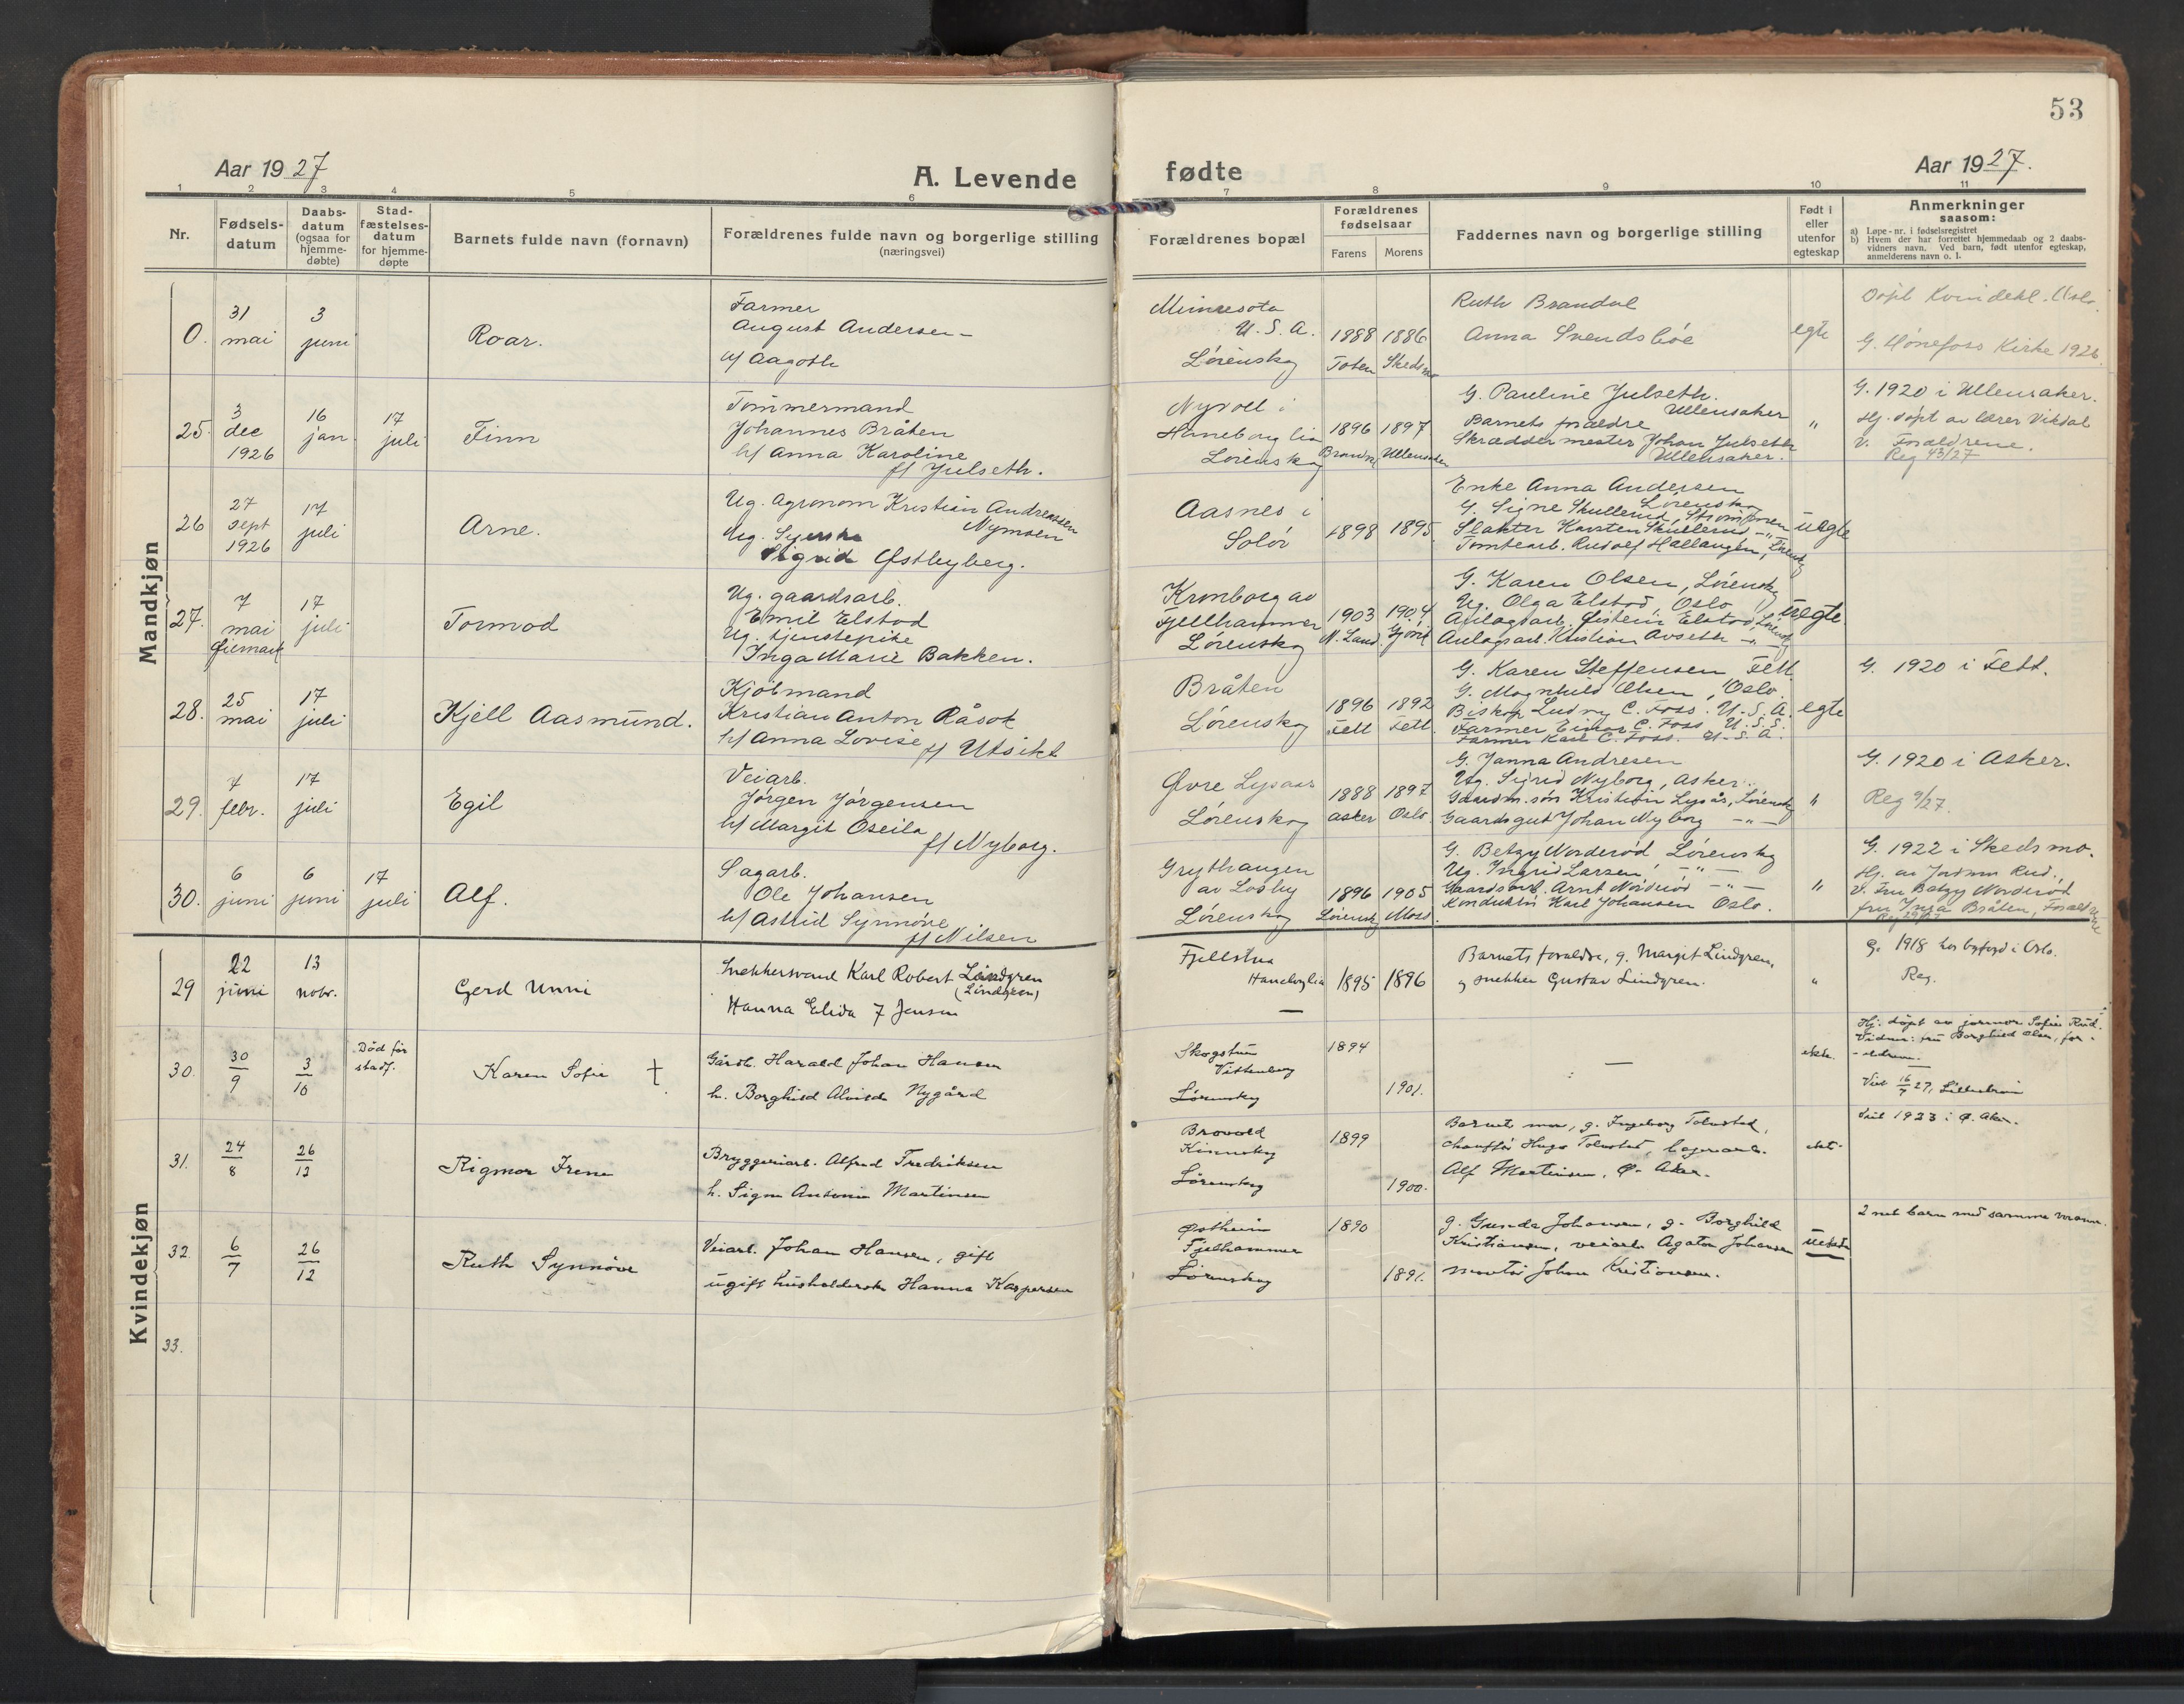 53
Aar 1927
A. Levende
fødte
Aar 1927.
1 2 3 4 5 6 7 8 9 10 11
Nr.
Fødsels-
datum
Daabs-
datum
(ogsaa for
hjemme-
døbte)
Stad-
fæstelses-
datum
for hjemme-
døpte
Barnets fulde navn (fornavn)
Forældrenes fulde navn og borgerlige stilling
(næringsvei)
Forældrenes bopæl
Forældrenes
fødselsaar
Farens
Morens
Faddernes navn og borgerlige stilling
Født i
eller
utenfor
egteskap
Anmerkninger
saasom:
a) Løpe-nr. i fødselsregistret
b) Hvem der har forrettet hjemmedaab og 2 daabs-
vidners navn. Ved barn, født utenfor egteskap,
anmelderens navn o. l.
Mandkjøn
0.
31
mai
3
juni
Roar.
Farmer
August Andersen
h/ Aagoth
Minnesota
U. S. A.
Lørenskog
1888
Toten
1886
Skedsmo
Ruth Brandal
Anna Svendsbøe
egte
Døpt Kvindekl. Oslo.
G. Hønefoss Kirke 1926.
25.
3
dec
1926
16
jan.
17
juli
Finn
Tømmermand
Johannes Bråten
h/ Anna Karoline
f/ Julseth.
Nyvoll i
Haneborglia
Lørenskog
1896
1897
Ullensaker
G. Pauline Julseth.
Ullensaker
Barnets forældre
Skræddermester Johan Julseth
Ullensaker.
"
G. 1920 i Ullensaker.
Hj. døpt av lærer Vikdal
v. Forældrene.
Reg 43/27
26
27
sept
1926
17
juli
Arne.
Ug. Agronom Kristian Andreassen
Nymoen
Ug. Syerske
Sigrid Østbyberg.
Aasnes i
Solør
1898
1895
Enke Anna Andersen
Lørenskog
G. Signe Skullerud, Strømmen
Slakter Karsten Skullerud -"-
Tomtearb. Rudolf Hallangen, Lørensk
uegte
27.
7
mai
17
juli
Tormod
Ug. gaardsarb.
Emil Elstad
Ug. tjenstepike
Inga Marie Bakken.
Kronborg av
Fjellhammer
Lørenskog
1903
N. Land.
1904
Gjøvik
G. Karen Olsen, Lørenskog
Ug. Olga Elstad, Oslo
Anlagsarb. Øistein Elstad, Lørensk
Anlagsarb. Kristian Avseth -"-
uegte
28.
25
mai
17
juli
Kjell Aasmund.
Kjøbmand
Kristian Anton Råsok
h/ Anna Lovise
f/ Utsikt
Bråten
Lørenskog
1896
Fett
1892
Fett.
G. Karen Steffensen Fett.
G. Magnhild Olsen, Oslo.
Biskop Ludvig C. Foss. U.S.A.
Farmer Einar C. Foss U.S.A.
Farmer Karl C. Foss. U.S.A.
egte
G. 1920 i Fett.
29.
7
febr.
17
juli
Egil
Veiarb.
Jørgen Jørgensen
h/ Margit Oseila
f/ Nyborg.
Øvre Lysaas
Lørenskog
1888
Asker
1897
Oslo.
G. Janna Andresen
Ug. Sigrid Nyborg, Asker.
Gaardm. søn Kristian Lysås, Lørensk
Gaardsgut Johan Nyborg -"-
"
G. 1920 i Asker.
Reg 9/27
30.
6
juni
6
juni
17
juli
Alf.
Sagarb.
Ole Johansen
h/ Astrid Synnøve
f/ Nilsen
Grythaugen
av Losby
Lørenskog
1896
Lørensk
1905
Moss.
G. Betzy Norderød, Lørenskog
Ug. Ingrid Larsen, -"-
Gaardsarb. Arnt Norderød -"-
Konduktør Karl Johansen Oslo.
"
G. 1922 i Skedsmo.
Hj. av Jordmor Rud,
v. Fru Betzy Norderød
fru Inga Bråten, Forældrene
Kvindekjøn
29
22
juni
13
nobr.
Gerd Unni
Snekkersvend Karl Robert Lindgren
(Lindgren)
Hanna Elida f Jensen
Fjellstua
Haneborglia
—
1895
1896
Barnets forældre, g. Margit Lindgren,
og snekker Gustav Lindgren.
"
G. 1918 hos byfogd i Oslo.
Reg.
30.
30/9
3/10
Død før
stadf.
Karen Sofie †
Gårdb. Harald Johan Hansen
h. Borghild Alvilde Nygård
Vittenberg
Lørenskog
1894
1901.
—
ekte.
Hj. døpt av jormor Sofie Rud.
Vidner: fru Borghild Olsen, for-
eldrene.
31.
24/8
26/12
Rigmor Irene
Bryggeriarb. Alfred Fredriksen
h. Signe Antonie Martinsen
Brovold
Lørenskog
1899
1900.
Barnets mor, g. Ingeborg Tolvstad,
chauffør Hugo Tolvstad, lagerarb.
Alf Martinsen, Ø. Aker.
ekte
Viet 1923 i Ø. Aker.
32.
6/7
26/12
Ruth Synnøve
Veiarb. Johan Hansen, gift
ugift husholderske Hanna Kaspersen
Østheim
Fjelhammer
Lørenskog
1890
1891.
g. Gunda Johansen, g. Borghild
Kristiansen, veiarb. Agaton Johansen
montør Johan Kristiansen.
uekte
33.